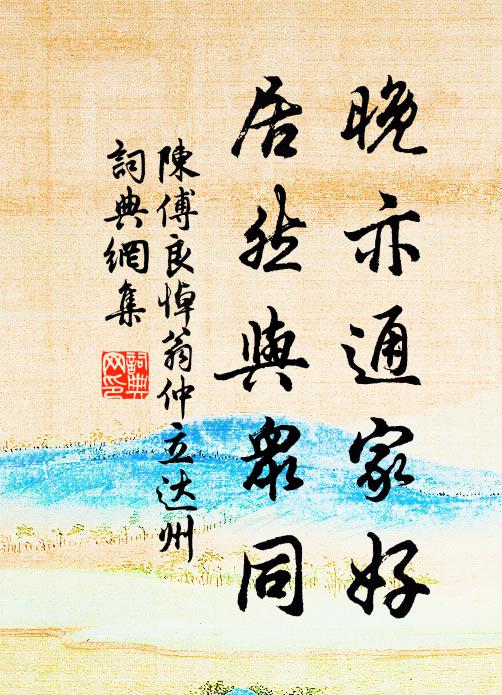 晚亦通家好
居然與眾同
陳傅良悼翁仲立达州
詞典網集
詞典
网印